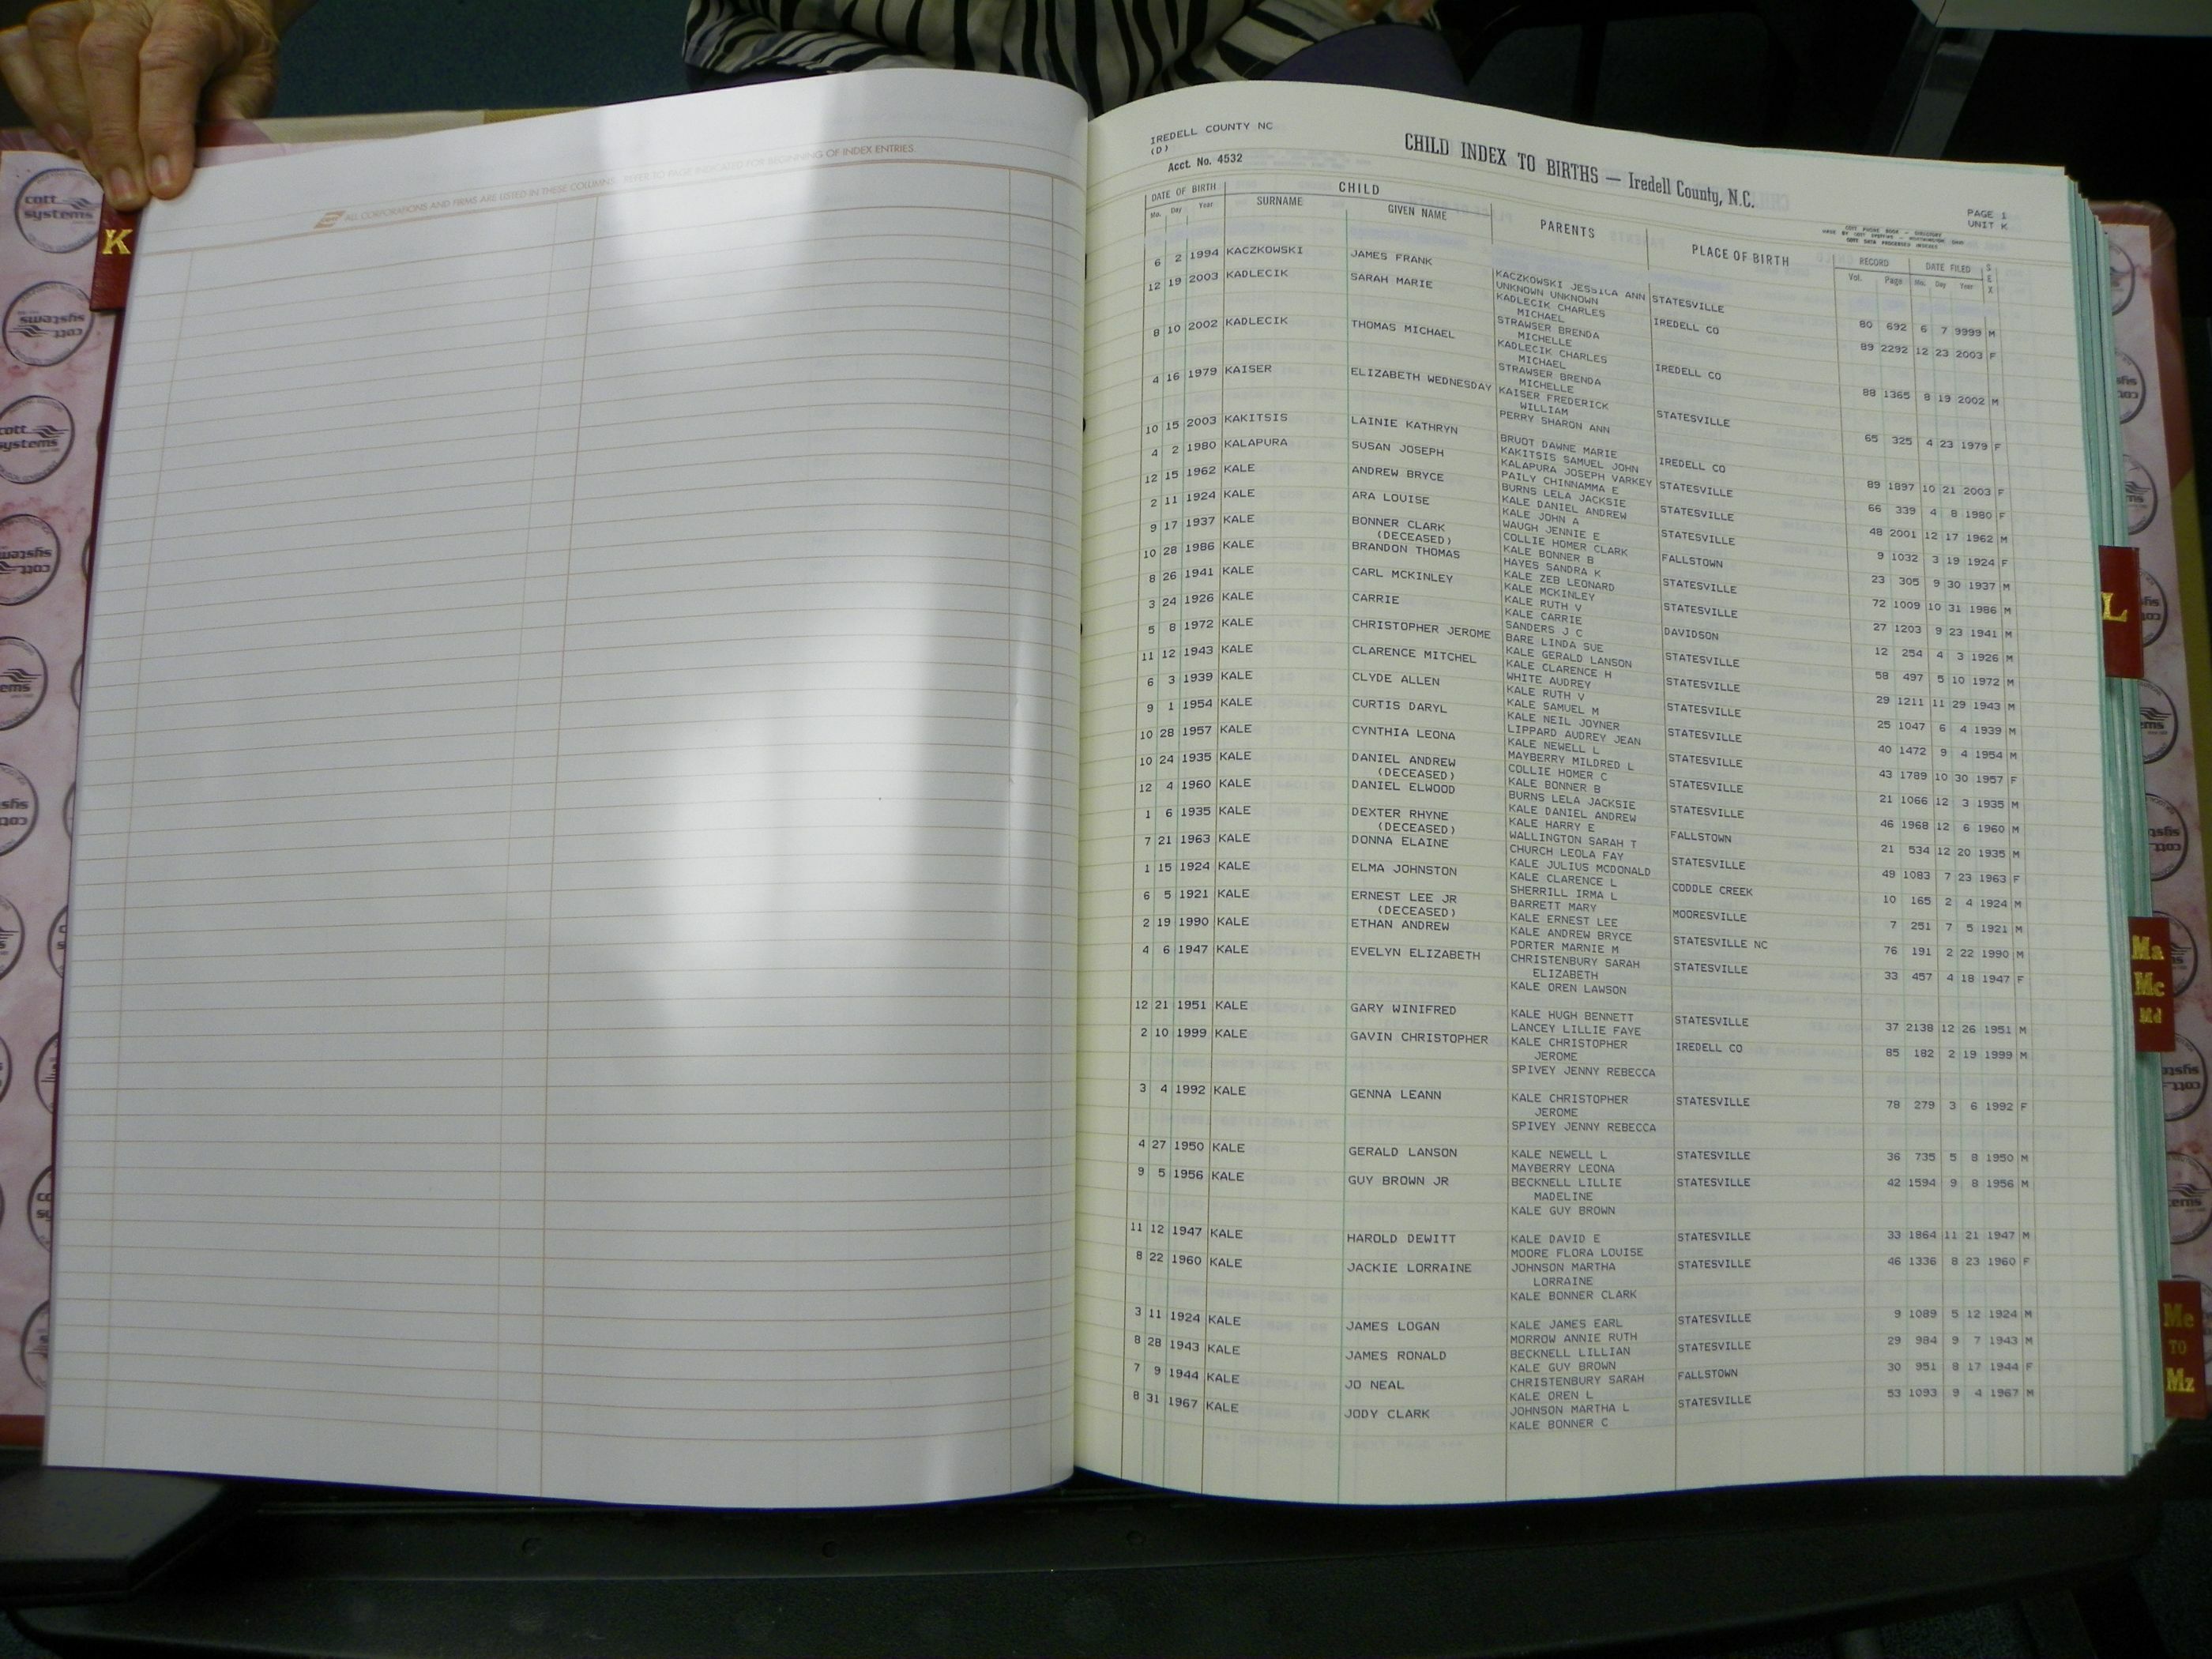 cott
systems
K
ALL CORPORATIONS AND FIRMS ARE LISTED IN THESE COLUMNS REFER TO PAGE INDICATED FOR BEGINNING OF INDEX ENTRIES
IREDELL COUNTY NC
(D)
Acct. No. 4532
CHILD INDEX TO BIRTHS — Iredell County, N.C.
PAGE 1
UNIT K
DATE OF BIRTH CHILD PARENTS PLACE OF BIRTH RECORD DATE FILED SEX
Mo. Day Year SURNAME GIVEN NAME Vol. Page Mo. Day Year
6 2 1994 KACZKOWSKI JAMES FRANK KACZKOWSKI JESSICA ANN STATESVILLE 80 692 6 7 9999 M
UNKNOWN UNKNOWN
12 19 2003 KADLECIK SARAH MARIE KADLECIK CHARLES IREDELL CO 89 2292 12 23 2003 F
MICHAEL
STRAWSER BRENDA
MICHELLE
8 10 2002 KADLECIK THOMAS MICHAEL KADLECIK CHARLES IREDELL CO 88 1365 8 19 2002 M
MICHAEL
STRAWSER BRENDA
MICHELLE
4 16 1979 KAISER ELIZABETH WEDNESDAY KAISER FREDERICK STATESVILLE 65 325 4 23 1979 F
WILLIAM
PERRY SHARON ANN
10 15 2003 KAKITSIS LAINIE KATHRYN BRUOT DAWNE MARIE IREDELL CO 89 1897 10 21 2003 F
KAKITSIS SAMUEL JOHN
4 2 1980 KALAPURA SUSAN JOSEPH KALAPURA JOSEPH VARKEY STATESVILLE 66 339 4 8 1980 F
PAILY CHINNAMMA E
12 15 1962 KALE ANDREW BRYCE BURNS LELA JACKSIE STATESVILLE 48 2001 12 17 1962 M
KALE DANIEL ANDREW
2 11 1924 KALE ARA LOUISE KALE JOHN A STATESVILLE 9 1032 3 19 1924 F
WAUGH JENNIE E
9 17 1937 KALE BONNER CLARK COLLIE HOMER CLARK FALLSTOWN 23 305 9 30 1937 M
(DECEASED) KALE BONNER B
10 28 1986 KALE BRANDON THOMAS HAYES SANDRA K STATESVILLE 72 1009 10 31 1986 M
KALE ZEB LEONARD
8 26 1941 KALE CARL MCKINLEY KALE MCKINLEY STATESVILLE 27 1203 9 23 1941 M
KALE RUTH V
3 24 1926 KALE CARRIE KALE CARRIE DAVIDSON 12 254 4 3 1926 M
SANDERS J C
5 8 1972 KALE CHRISTOPHER JEROME BARE LINDA SUE STATESVILLE 58 497 5 10 1972 M
KALE GERALD LANSON
11 12 1943 KALE CLARENCE MITCHEL KALE CLARENCE H STATESVILLE 29 1211 11 29 1943 M
WHITE AUDREY
6 3 1939 KALE CLYDE ALLEN KALE RUTH V STATESVILLE 25 1047 6 4 1939 M
KALE SAMUEL M
9 1 1954 KALE CURTIS DARYL KALE NEIL JOYNER STATESVILLE 40 1472 9 4 1954 M
LIPPARD AUDREY JEAN
10 28 1957 KALE CYNTHIA LEONA KALE NEWELL L STATESVILLE 43 1789 10 30 1957 F
MAYBERRY MILDRED L
10 24 1935 KALE DANIEL ANDREW COLLIE HOMER C STATESVILLE 21 1066 12 3 1935 M
(DECEASED) KALE BONNER B
12 4 1960 KALE DANIEL ELWOOD BURNS LELA JACKSIE STATESVILLE 46 1968 12 6 1960 M
KALE DANIEL ANDREW
1 6 1935 KALE DEXTER RHYNE KALE HARRY E FALLSTOWN 21 534 12 20 1935 M
(DECEASED) WALLINGTON SARAH T
7 21 1963 KALE DONNA ELAINE CHURCH LEOLA FAY STATESVILLE 49 1083 7 23 1963 F
KALE JULIUS MCDONALD
1 15 1924 KALE ELMA JOHNSTON KALE CLARENCE L CODDLE CREEK 10 165 2 4 1924 M
SHERRILL IRMA L
6 5 1921 KALE ERNEST LEE JR BARRETT MARY MOORESVILLE 7 251 7 5 1921 M
(DECEASED) KALE ERNEST LEE
2 19 1990 KALE ETHAN ANDREW KALE ANDREW BRYCE STATESVILLE NC 76 191 2 22 1990 M
PORTER MARNIE M
4 6 1947 KALE EVELYN ELIZABETH CHRISTENBURY SARAH STATESVILLE 33 457 4 18 1947 F
ELIZABETH
KALE OREN LAWSON
12 21 1951 KALE GARY WINIFRED KALE HUGH BENNETT STATESVILLE 37 2138 12 26 1951 M
LANCEY LILLIE FAYE
2 10 1999 KALE GAVIN CHRISTOPHER KALE CHRISTOPHER IREDELL CO 85 182 2 19 1999 M
JEROME
SPIVEY JENNY REBECCA
3 4 1992 KALE GENNA LEANN KALE CHRISTOPHER STATESVILLE 78 279 3 6 1992 F
JEROME
SPIVEY JENNY REBECCA
4 27 1950 KALE GERALD LANSON KALE NEWELL L STATESVILLE 36 735 5 8 1950 M
MAYBERRY LEONA
9 5 1956 KALE GUY BROWN JR BECKNELL LILLIE STATESVILLE 42 1594 9 8 1956 M
MADELINE
KALE GUY BROWN
11 12 1947 KALE HAROLD DEWITT KALE DAVID E STATESVILLE 33 1864 11 21 1947 M
MOORE FLORA LOUISE
8 22 1960 KALE JACKIE LORRAINE JOHNSON MARTHA STATESVILLE 46 1336 8 23 1960 F
LORRAINE
KALE BONNER CLARK
3 11 1924 KALE JAMES LOGAN KALE JAMES EARL STATESVILLE 9 1089 5 12 1924 M
MORROW ANNIE RUTH
8 28 1943 KALE JAMES RONALD BECKNELL LILLIAN STATESVILLE 29 984 9 7 1943 M
KALE GUY BROWN
7 9 1944 KALE JO NEAL CHRISTENBURY SARAH FALLSTOWN 30 951 8 17 1944 F
KALE OREN L
8 31 1967 KALE JODY CLARK JOHNSON MARTHA L STATESVILLE 53 1093 9 4 1967 M
KALE BONNER C
L
Ma
Mc
Md
Me
TO
Mz